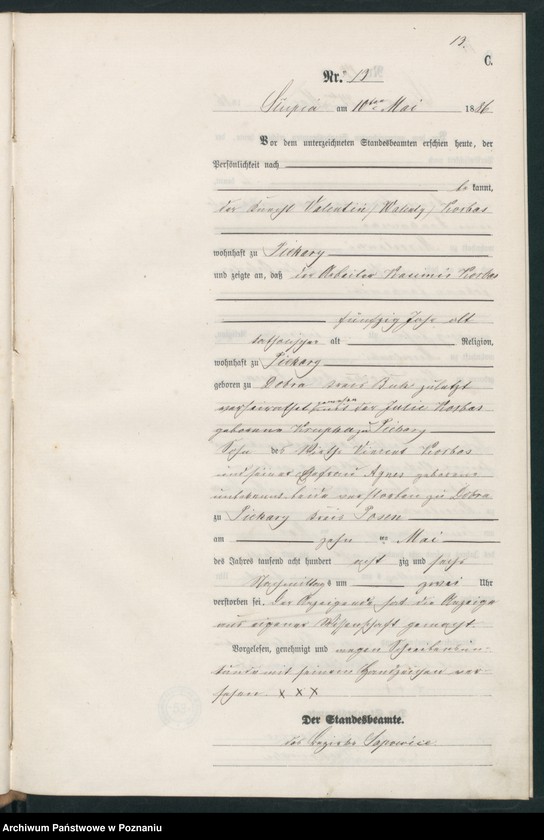 13.
C.
Nr. 13
Słupia am 10ten Mai 1886
Vor dem unterzeichneten Standesbeamten erschien heute, der
Persönlichkeit nach
be kannt,
der Knecht Valentin (Walenty) Korbas
wohnhaft zu Piekary
und zeigte an, daß der Arbeiter Kasimir Korbas
fünfzig Jahr alt
katholischer alt Religion,
wohnhaft zu Piekary
geboren zu Dobra Kreis Buk zuletzt
verheirathet gewesen mit der Julie Korbas
geborene Krupka zu Piekary
Sohn des Wirths Vincent Korbas
und seiner Ehefrau Agnes geborene
unbekannt beide verstorben zu Dobra
zu Piekary Kreis Posen
am zehn ten Mai
des Jahres tausend acht hundert acht zig und sechs
Nachmittags um zwei Uhr
verstorben sei. Der Anzeigende hat die Anzeige
aus eigener Wissenschaft gemacht
Vorgelesen, genehmigt und wegen Schreibensun-
kunde mit seinem Handzeichen ver-
sehen. x x x
Der Standesbeamte.
des Bezirks Sapowice.
53
Archiwum Państwowe w Poznaniu